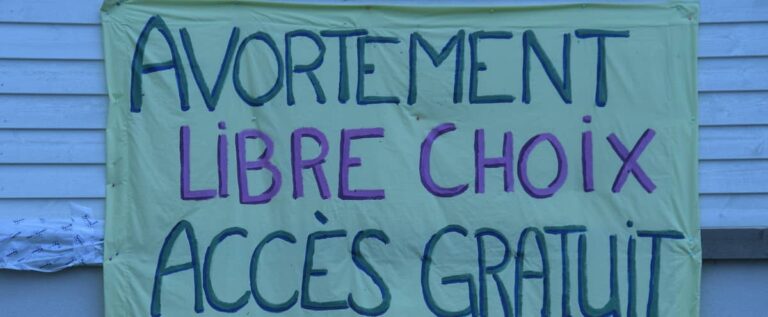 AVORTEMENT
LiBRE CHOiX
ACCÈS GRATUiT